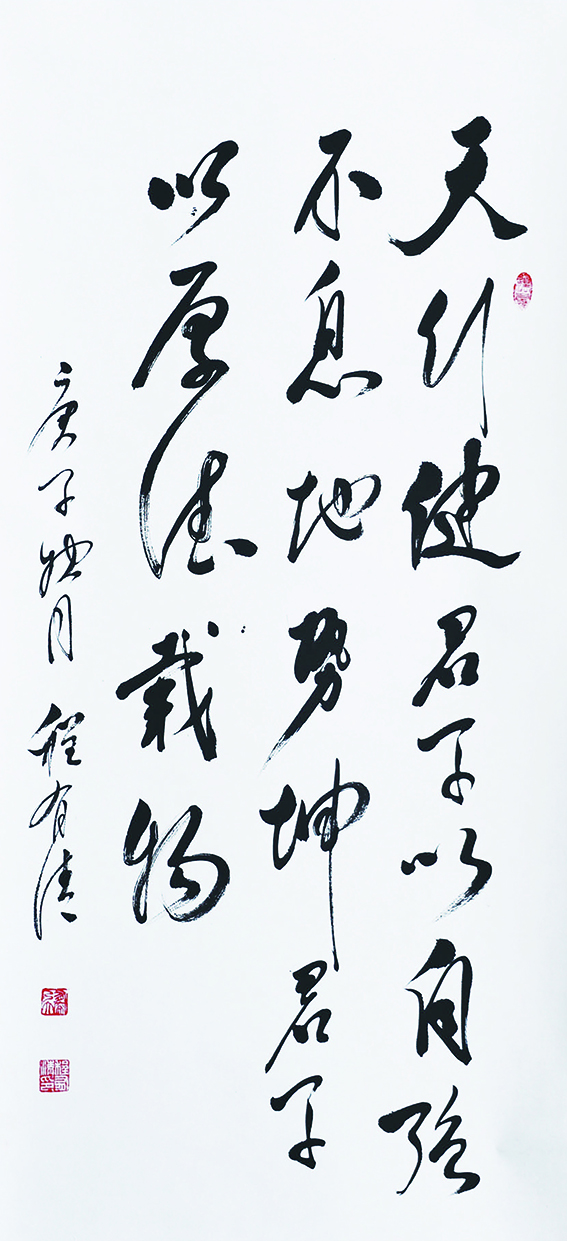 天行健君子以自强
不息地势坤君子
以厚德载物
庚子牡月 程有清